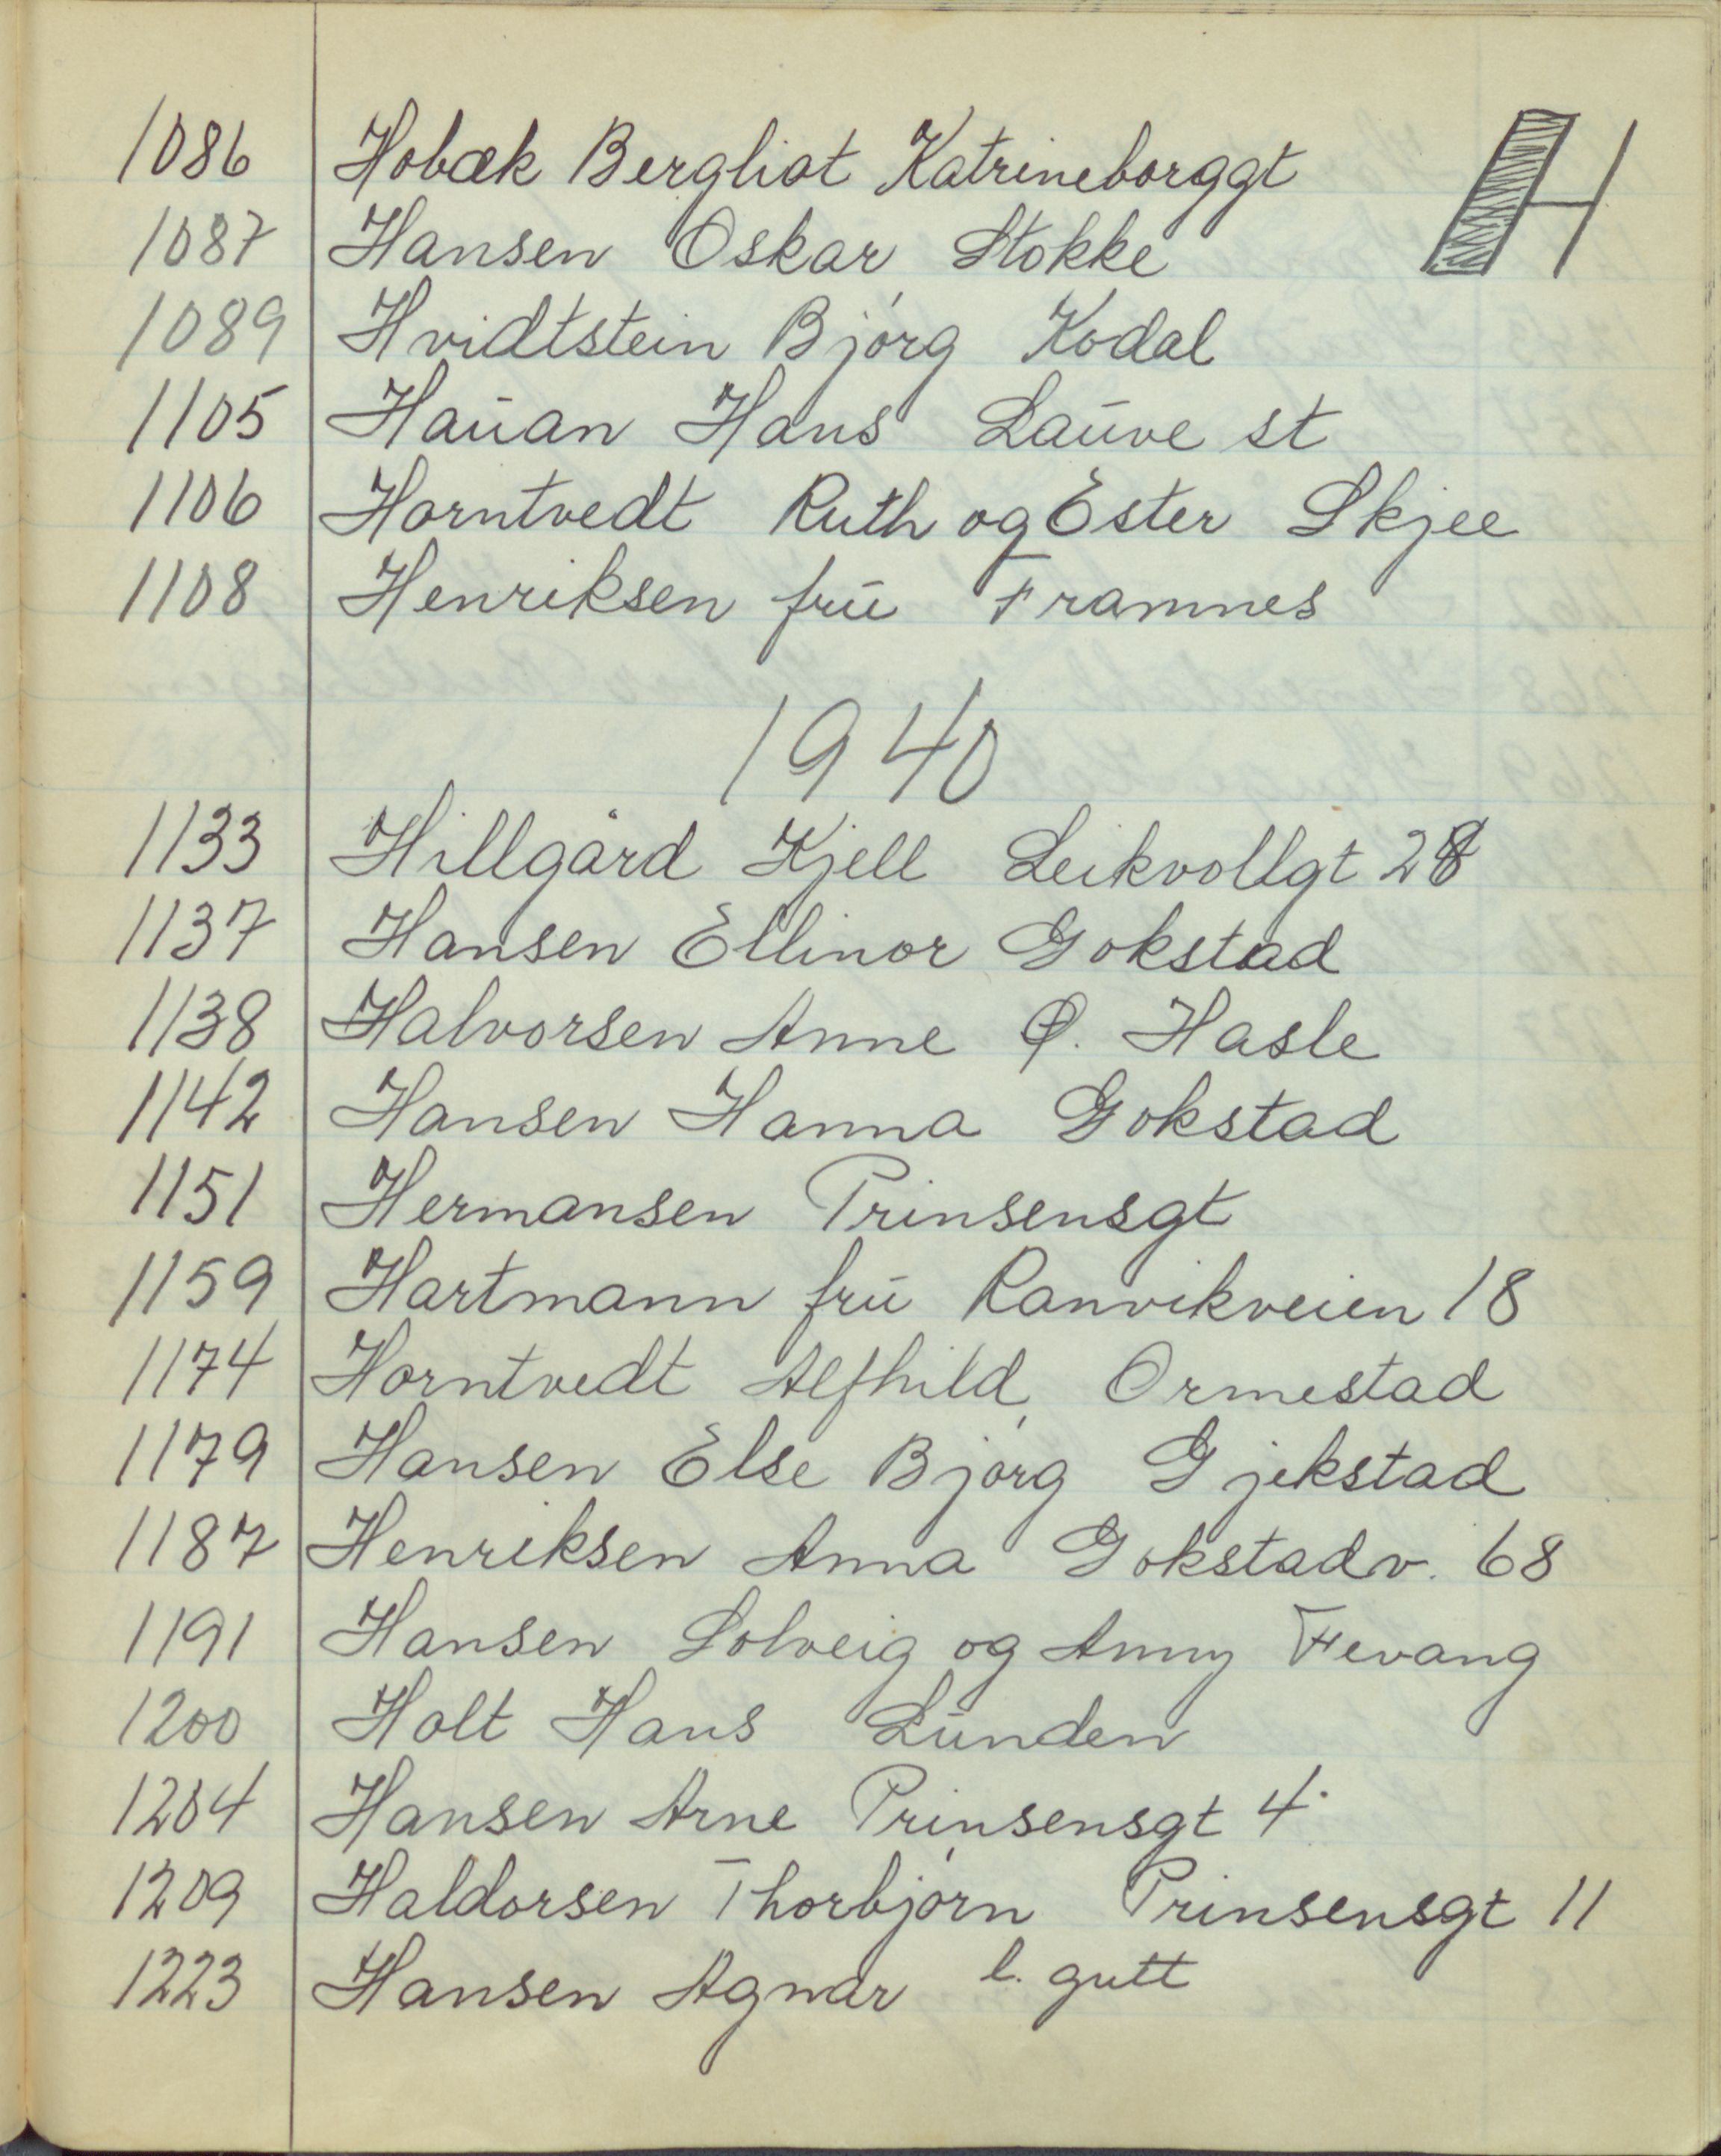 H
1086 Hobæk Bergliot Katrineborggt
1087 Hansen Oskar Stokke
1089 Hvidtstein Bjórg Kodal
1105 Hauan Hans Lauve st
1106 Horntvedt Ruth og Ester Skjee
1108 Henriksen fru Framnes
1940
1133 Hillgård Kjell Leikvollgt 28
1137 Hansen Ellinor Gokstad
1138 Halvorsen Anne Ø. Hasle
1142 Hansen Hanna Gokstad
1151 Hermansen Prinsensgt
1159 Hartmann fru Ranvikveien 18
1174 Horntvedt Alfhild Ormestad
1179 Hansen Else Bjórg Gjekstad
1187 Henriksen Anna Gokstadv. 68
1191 Hansen Solveig og Anny Fevang
1200 Holt Hans Lunden
1204 Hansen Arne Prinsensgt 4
1209 Haldorsen Thorbjórn Prinsensgt 11
1223 Hansen Agnar l. gutt